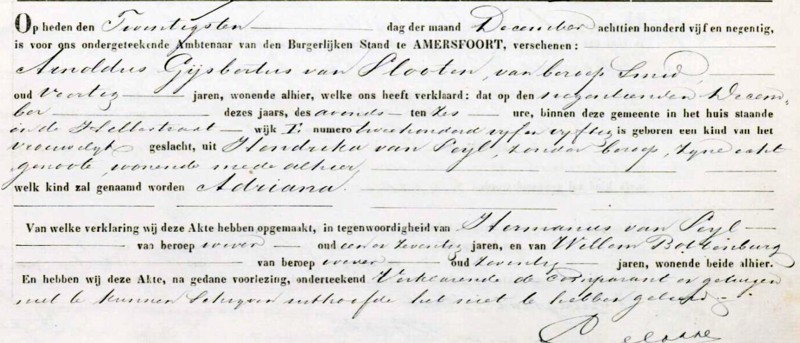 Op heden den Twintigsten dag der maand December achttien honderd vijf en negentig,
is voor ons ondergeteekende Ambtenaar van den Burgerlijken Stand te AMERSFOORT, verschenen:
Arnoldus Gijsbertus van Slooten, van beroep Smid,
oud Veertig jaren, wonende alhier, welke ons heeft verklaard: dat op den negentienden Decem-
ber dezes jaars, des avonds ten zes ure, binnen deze gemeente in het huis staande
in de Hellestraat wijk I numero tweehonderd vijf en vijftig is geboren een kind van het
vrouwelijk geslacht, uit Hendrika van Peijl, zonder beroep, zijne echt
genoote, wonende mede alhier,
welk kind zal genaamd worden Adriana.
Van welke verklaring wij deze Akte hebben opgemaakt, in tegenwoordigheid van Hermanus van Peijl
van beroep wever oud een en zeventig jaren, en van Willem
van beroep wever oud zeventig jaren, wonende beide alhier.
En hebben wij deze Akte, na gedane voorlezing, onderteekend Verklarende de comparant en getuigen
niet te kunnen schrijven uithoofde het niet te hebben geleerd.